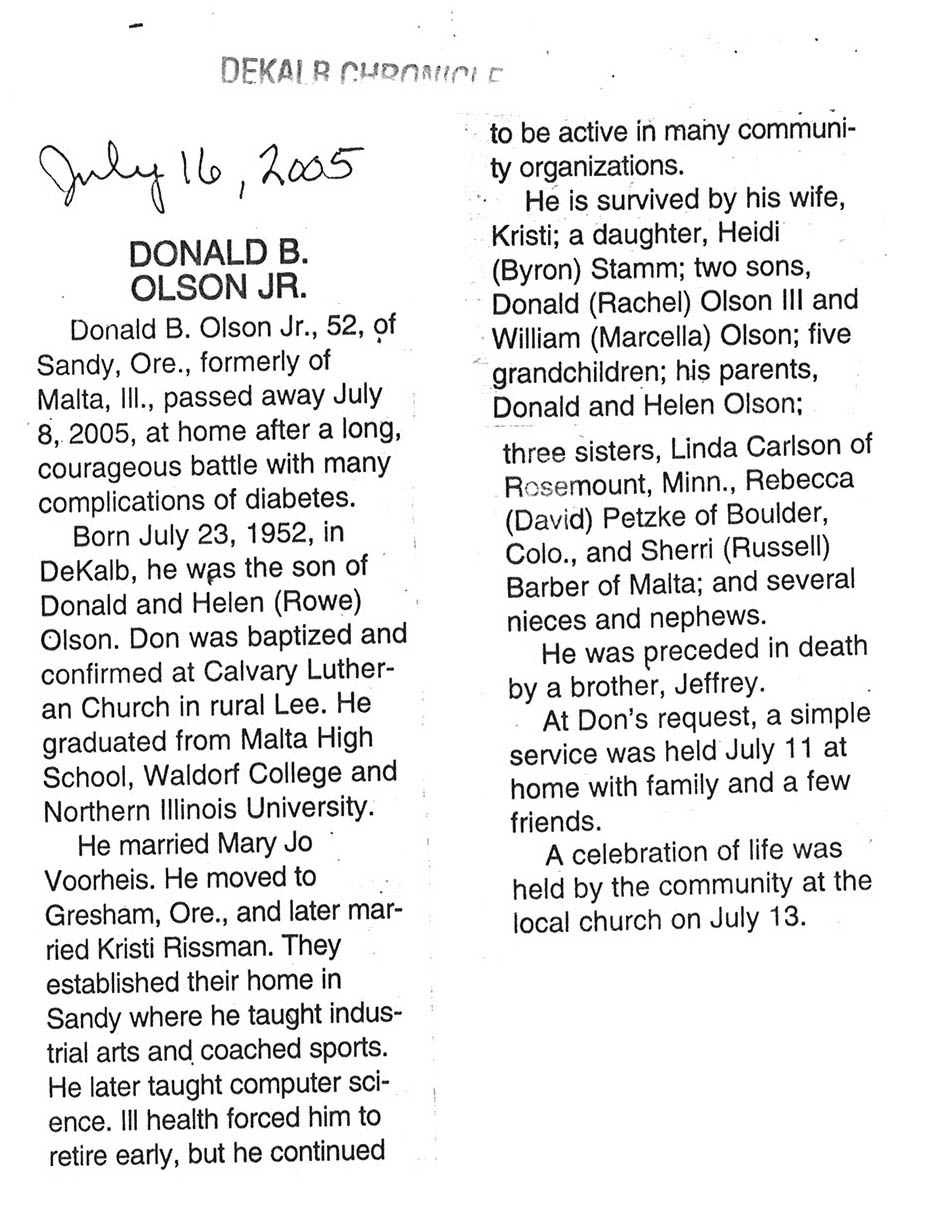 DEKALB CHRONICLE
July 16, 2005
DONALD B.
OLSON JR.
Donald B. Olson Jr., 52, of
Sandy, Ore., formerly of
Malta, Ill., passed away July
8, 2005, at home after a long,
courageous battle with many
complications of diabetes.
Born July 23, 1952, in
DeKalb, he was the son of
Donald and Helen (Rowe)
Olson. Don was baptized and
confirmed at Calvary Luther-
an Church in rural Lee. He
graduated from Malta High
School, Waldorf College and
Northern Illinois University.
He married Mary Jo
Voorheis. He moved to
Gresham, Ore., and later mar-
ried Kristi Rissman. They
established their home in
Sandy where he taught indus-
trial arts and coached sports.
He later taught computer sci-
ence. Ill health forced him to
retire early, but he continued
to be active in many communi-
ty organizations.
He is survived by his wife,
Kristi; a daughter, Heidi
(Byron) Stamm; two sons,
Donald (Rachel) Olson III and
William (Marcella) Olson; five
grandchildren; his parents,
Donald and Helen Olson;
three sisters, Linda Carlson of
Rosemount, Minn., Rebecca
(David) Petzke of Boulder,
Colo., and Sherri (Russell)
Barber of Malta; and several
nieces and nephews.
He was preceded in death
by a brother, Jeffrey.
At Don's request, a simple
service was held July 11 at
home with family and a few
friends.
A celebration of life was
held by the community at the
local church on July 13.